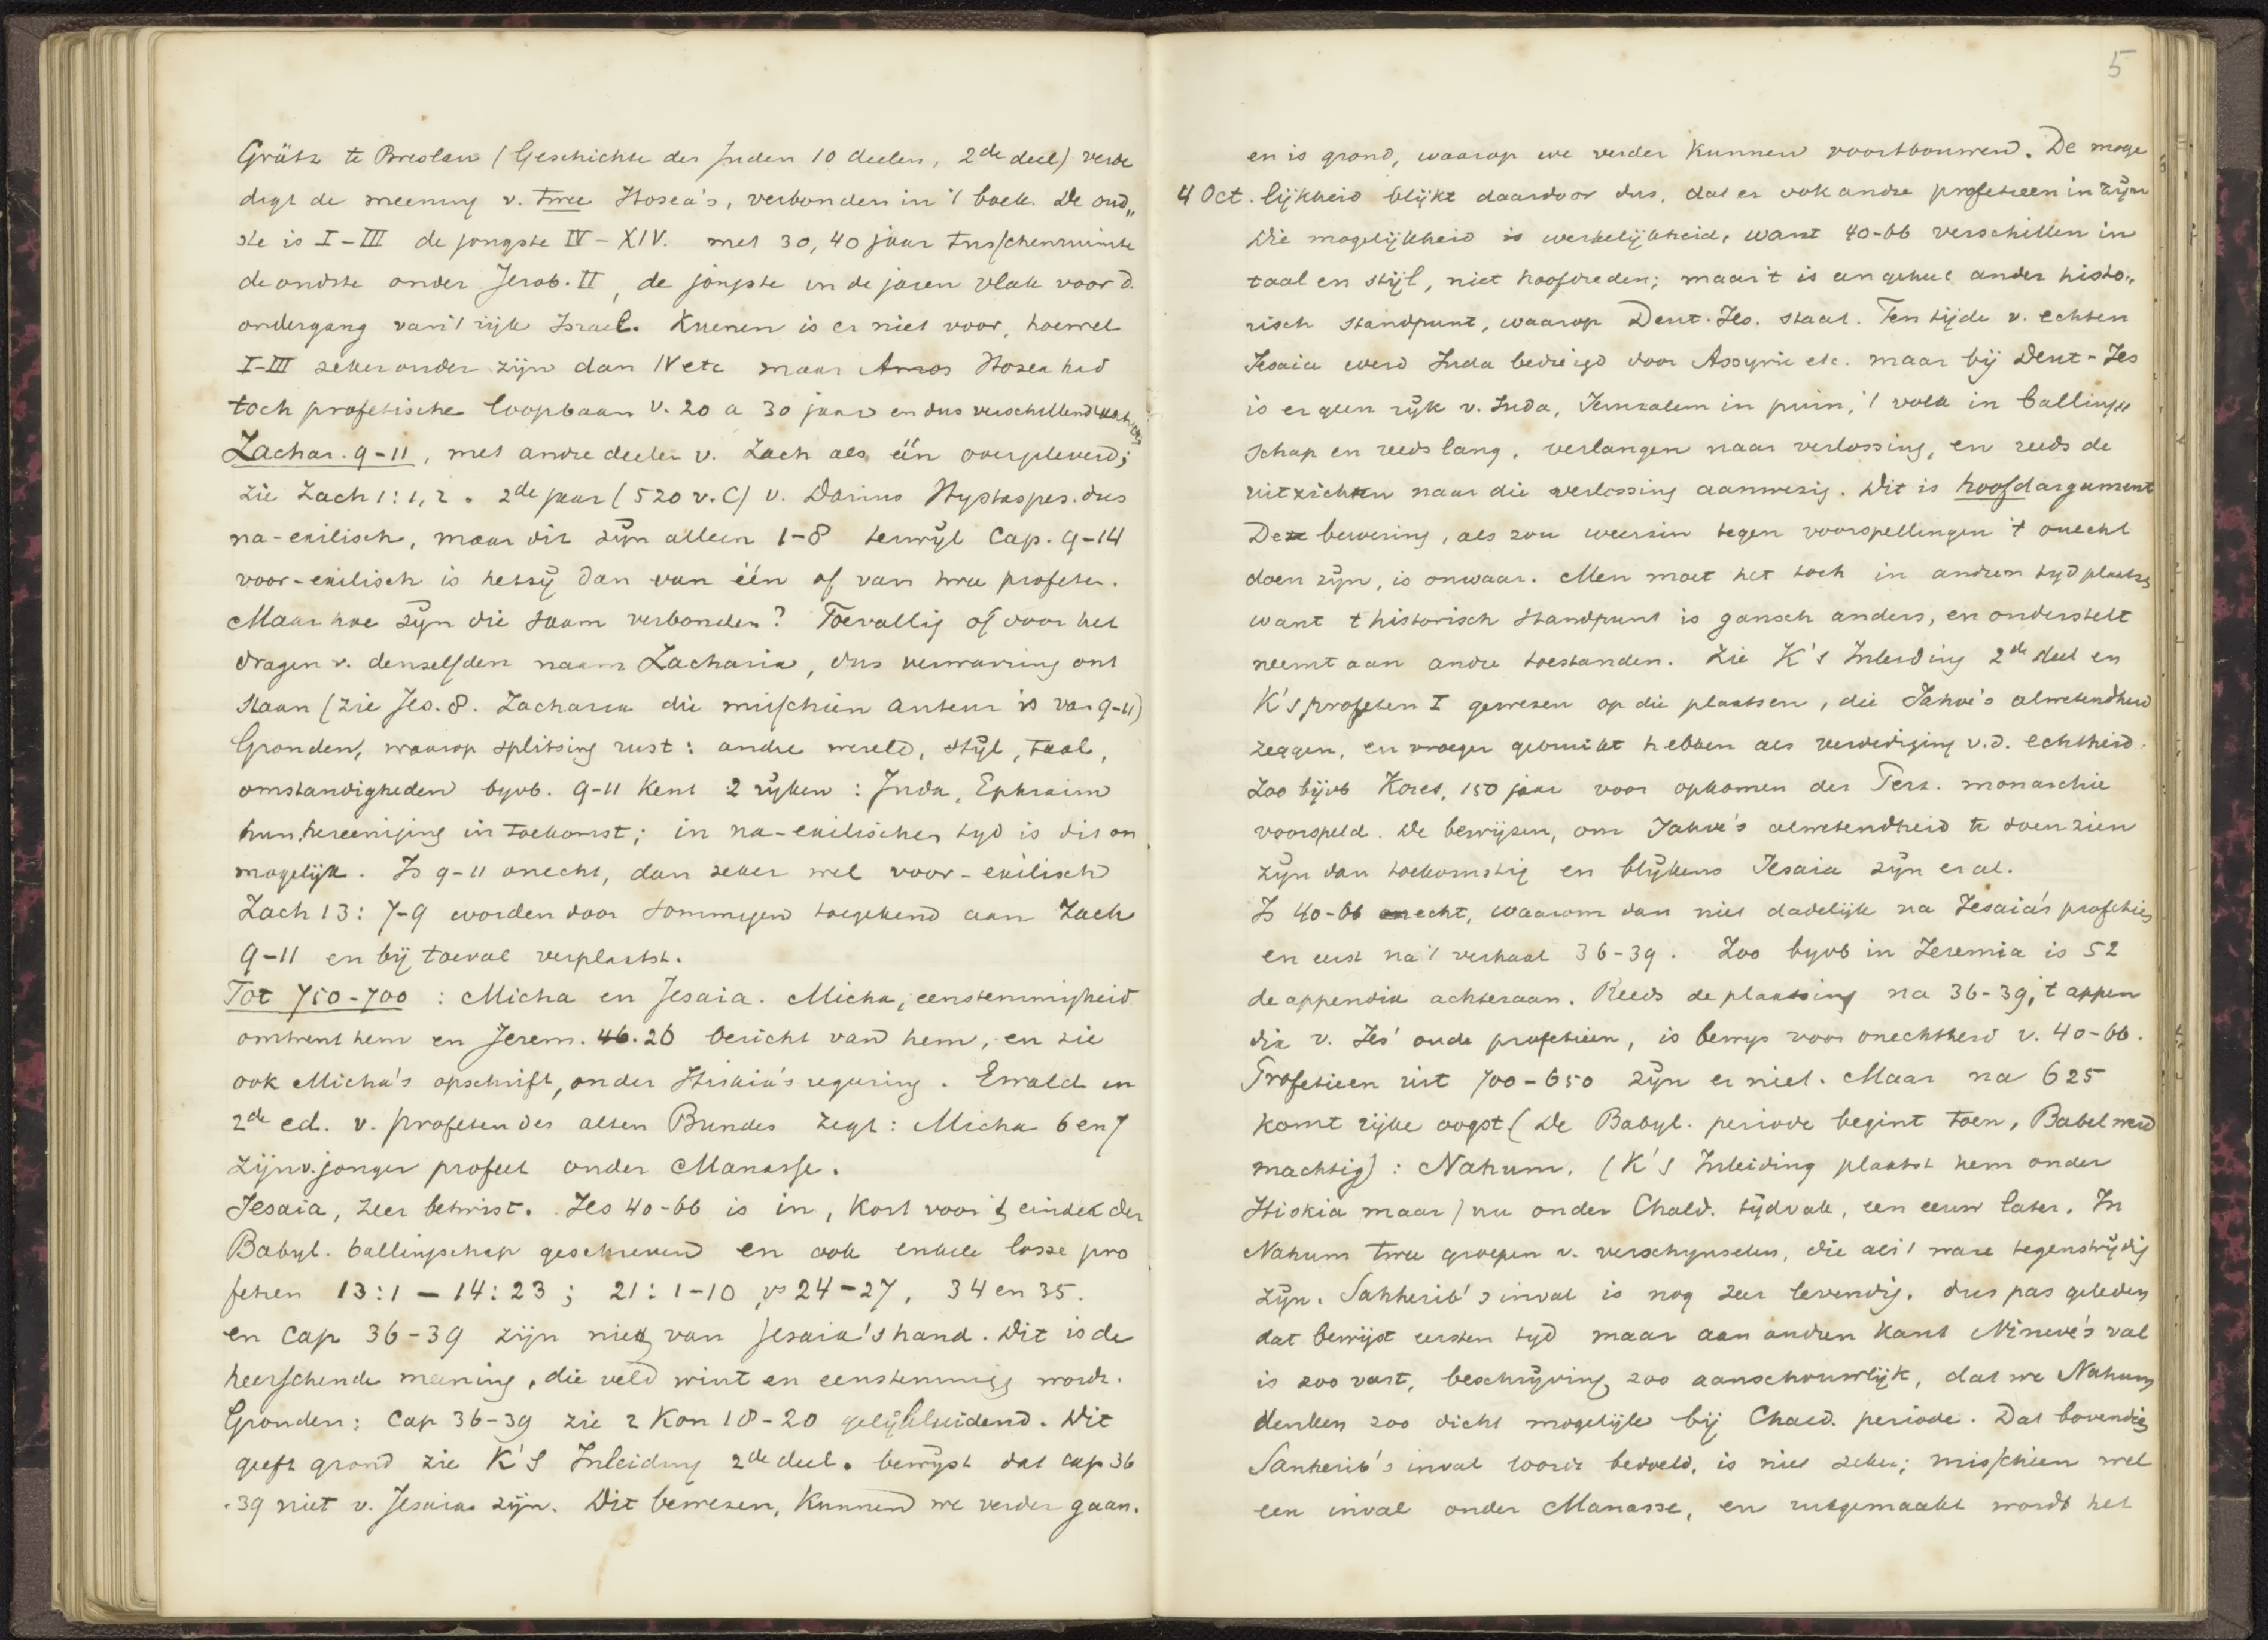 Grätz te Breslau (Geschichte der Juden 10 deelen, 2de deel) verde
digt de meening v. twee Hosea's, verbonden in 't boek. De oud„
ste is I-III de jongste IV-XIV. met 30, 40 jaar tusschenruimte
de oudste onder Jerob. II, de jongste in de jaren vlak voor d.
ondergang van 't rijk Israel. Kuenen is er niet voor, hoewel
I-III zeker ouder zijn dan IV etc maar Amos Hosea had
toch profetische loopbaan v. 20 a 30 jaar en dus verschillende
Zachar. 9-11, met andre deelen v. Zach als één overgeleverd;
zie Zach 1:1, 2. 2de jaar (520 v. C) v. Darius Hystaspes. dus
na-exilisch, maar dit zijn alleen 1-8 terwijl Cap. 9-14
voor-exilisch is hetzij dan van één of van twee profeten.
Maar hoe zijn die saam verbonden? Toevallig of door het
dragen v. denzelfden naam Zacharia, dus verwarring ont
staan (zie Jes. 8. Zacharia die misschien auteur is van 9-11)
Gronden, waarop splitsing rust: andre wereld, stijl, taal,
omstandigheden byvb. 9-11 kent 2 rijken: Juda, Ephraim
hun hereeniging in toekomst; in na-exilischen tijd is dit on
mogelijk. Is 9-11 onecht, dan zeker wel voor-exilisch
Zach 13: 7-9 worden door sommigen toegekend aan Zach
9-11 en bij toeval verplaatst.
Tot 750-700: Micha en Jesaia. Micha, eenstemmigheid
omtrent hem en Jerem. 46.26 bericht van hem, en zie
ook Micha's opschrift, onder Hiskia's regering. Ewald in
2de ed. v. profeten des alten Bundes zegt: Micha 6 en 7
zijn v. jonger profeet onder Manasse.
Jesaia, zeer betwist. Jes 40-66 is in, kort voor 't einde der
Babyl. ballingschap geschreven en ook enkele losse pro
fetien 13:1 — 14:23; 21:1-10, vs 24-27, 34 en 35.
en Cap 36-39 zijn niet van Jesaia's hand. Dit is de
heerschende meening, die veld wint en eenstemmig wordt.
Gronden: Cap 36-39 zie 2 Kon 18-20 gelijkluidend. Dit
geeft grond zie K's Inleiding 2de deel. bewijst dat cap 36
-39 niet v. Jesaia zijn. Dit bewezen, kunnen we verder gaan.
5
en is grond, waarop we verder kunnen voortbouwen. De moge
4 Oct. lijkheid blijkt daardoor dus, dat er ook andre profetieen in zijn
Die mogelijkheid is werkelijkheid, want 40-66 verschillen in
taal en stijl, niet hoofdreden; maar 't is een geheel ander histo„
risch standpunt, waarop Deut. Jes. staat. Ten tijde v. echten
Jesaia werd Juda bedreigd door Assyrie etc. maar bij Deut-Jes
is er geen rijk v. Juda, Jeruzalem in puin, 't volk in balling„
schap en reeds lang, verlangen naar verlossing, en reeds de
uitzichten naar die verlossing aanwezig. Dit is hoofdargument
Deze bewering, als zou weerzin tegen voorspellingen 't onecht
doen zijn, is onwaar. Men moet het toch in andren tijd plaatsen
want 't historisch standpunt is gansch anders, en onderstelt
neemt aan andre toestanden. Zie K's Inleiding 2de deel en
K's profeten I gewezen op die plaatsen, die Jahve's alwetendheid
zeggen, en vroeger gebruikt hebben als verdediging v.d. echtheid.
Zoo bijvb Kores, 150 jaar voor opkomen der Perz. monarchie
voorspeld. De bewijzen, om Jahve's alwetendheid te doen zien
zijn dan toekomstig en blijkens Jesaia zijn er al.
Is 40-66 echt, waarom dan niet dadelijk na Jesaia's profetien
en eerst na 't verhaal 36-39. Zoo byvb in Jeremia is 52
de appendix achteraan. Reeds de plaatsing na 36-39, 't appen
dix v. Jes' oude profetieen, is bewijs voor onechtheid v. 40-66.
Profetieen uit 700-650 zijn er niet. Maar na 625
komt rijke oogst (De Babyl. periode begint toen, Babel werd
machtig): Nahum. (K's Inleiding plaatst hem onder
Hiskia maar) nu onder Chald. tijdvak, een eeuw later. In
Nahum twee groepen v. verschijnselen, die als 't ware tegenstrijdig
zijn. Sanherib's inval is nog zeer levendig, dus pas geleden
dat bewijst eersten tijd maar aan andren kant Nineve's val
is zoo vast, beschrijving zoo aanschouwlijk, dat we Nahum
denken zoo dicht mogelijk bij Chald. periode. Dat bovendien
Sanherib's inval wordt bedoeld, is niet zeker; misschien wel
een inval onder Manasse, en uitgemaakt wordt het